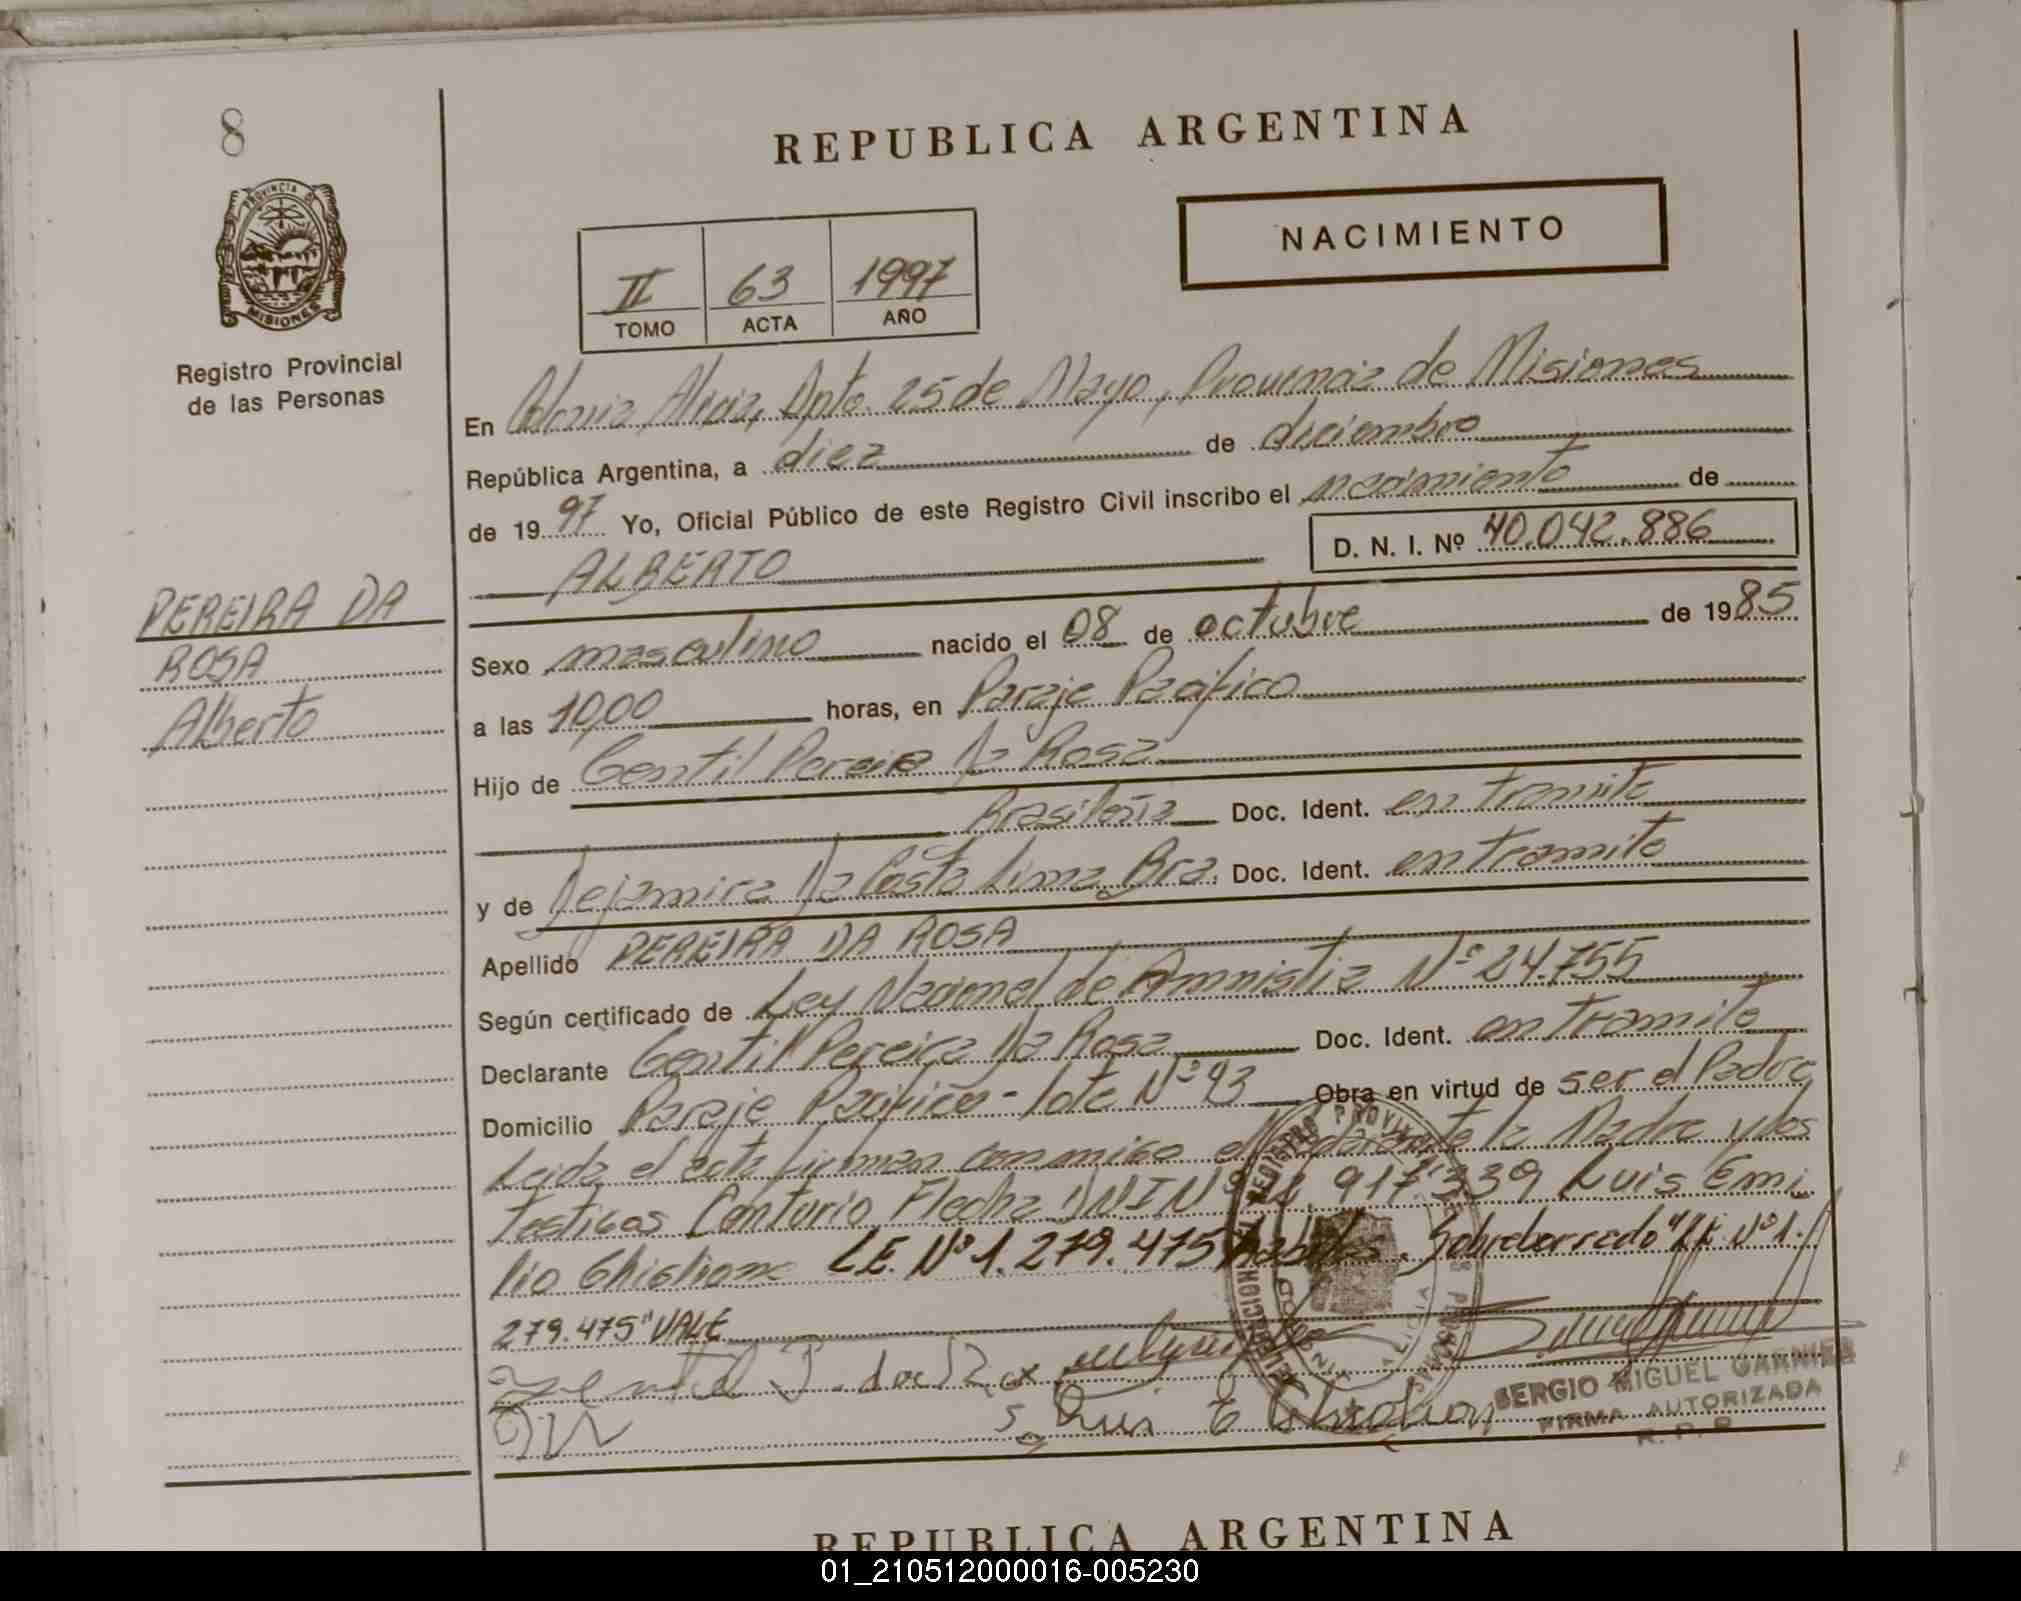 8
REPUBLICA ARGENTINA
NACIMIENTO
PROVINCIA DE
MISIONES
Registro Provincial
de las Personas
II 63 1997
TOMO ACTA AÑO
En Colonia Alicia, Dpto. 25 de Mayo, Provincia de Misiones
República Argentina, a diez de diciembre
de 1997 Yo, Oficial Público de este Registro Civil inscribo el nacimiento de
ALBERTO
D. N. I. Nº 40.042.886
PEREIRA DA
ROSA
Alberto
Sexo masculino nacido el 08 de octubre de 1985
a las 10,00 horas, en Paraje Pacifico
Hijo de Gentil Pereira Da Rosa
Brasileña Doc. Ident. en tramite
y de Dejamira Da Costa Lima Bra. Doc. Ident. en tramite
Apellido PEREIRA DA ROSA
Según certificado de Ley Nacional de Amnistia Nº 24.755
Declarante Gentil Pereira Da Rosa Doc. Ident. en tramite
Domicilio Paraje Pacifico - lote Nº 93 Obra en virtud de ser el Padre
Leida el acta firman conmigo el declarante la Madre y los
Testigos Flecha DNI Nº 917.339 Luis Emi
lio Ghishone LE. Nº 1.279.475 Sobreborrado "LE Nº 1.
279.475" VALE
SERGIO MIGUEL GARNIER
FIRMA AUTORIZADA
R. P. P.
REPUBLICA ARGENTINA
01_210512000016-005230